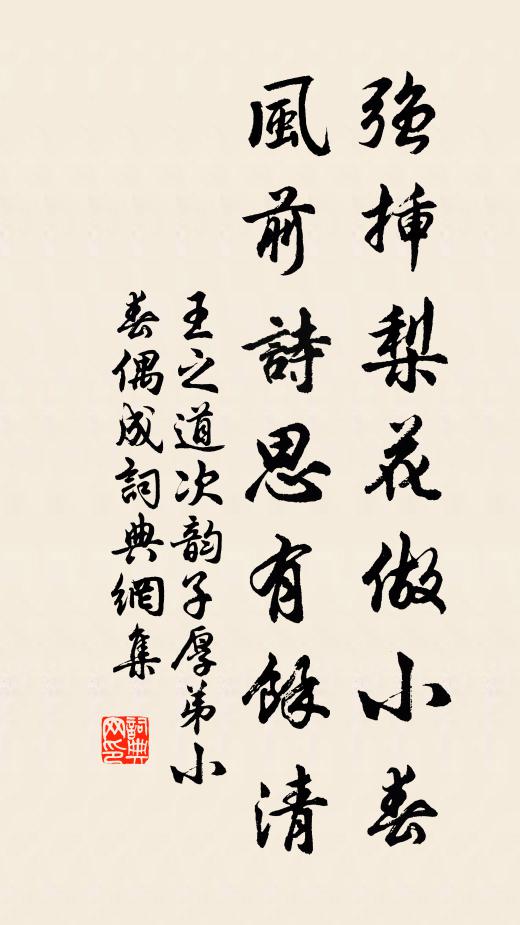 強挿梨花做小春
風前詩思有餘清
王之道次韵子厚弟小
春偶成詞典網集
詞典
网印